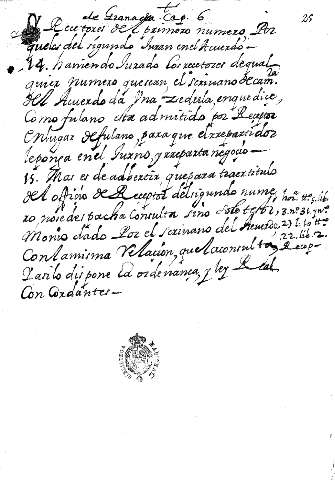 de Granada Cap. 6
25
Receptores del primero numero, Por
queles del segundo Juran en el Acuerdo
14. haviendo Jurado los receptores de qual
quier numero que sean, el escrivano de cam.ra
del Acuerdo da Una Zedula, en que dice,
Como fulano esta admitido por Rezeptor
en lugar de fulano, para que el repartidor
le ponga en el turno, y reparta negocio
15. Mas es de advertir que para traer titulo
del officio de Receptor del segundo nume
ro, no se despacha Consulta, sino solo testi
Monio dado Por el escrivano del Acuerdo
Con la misma relacion, que la consulta,
y asi lo dispone la ordenança, y ley Real
Con Cordantes
22. lib. 2.
Recop.